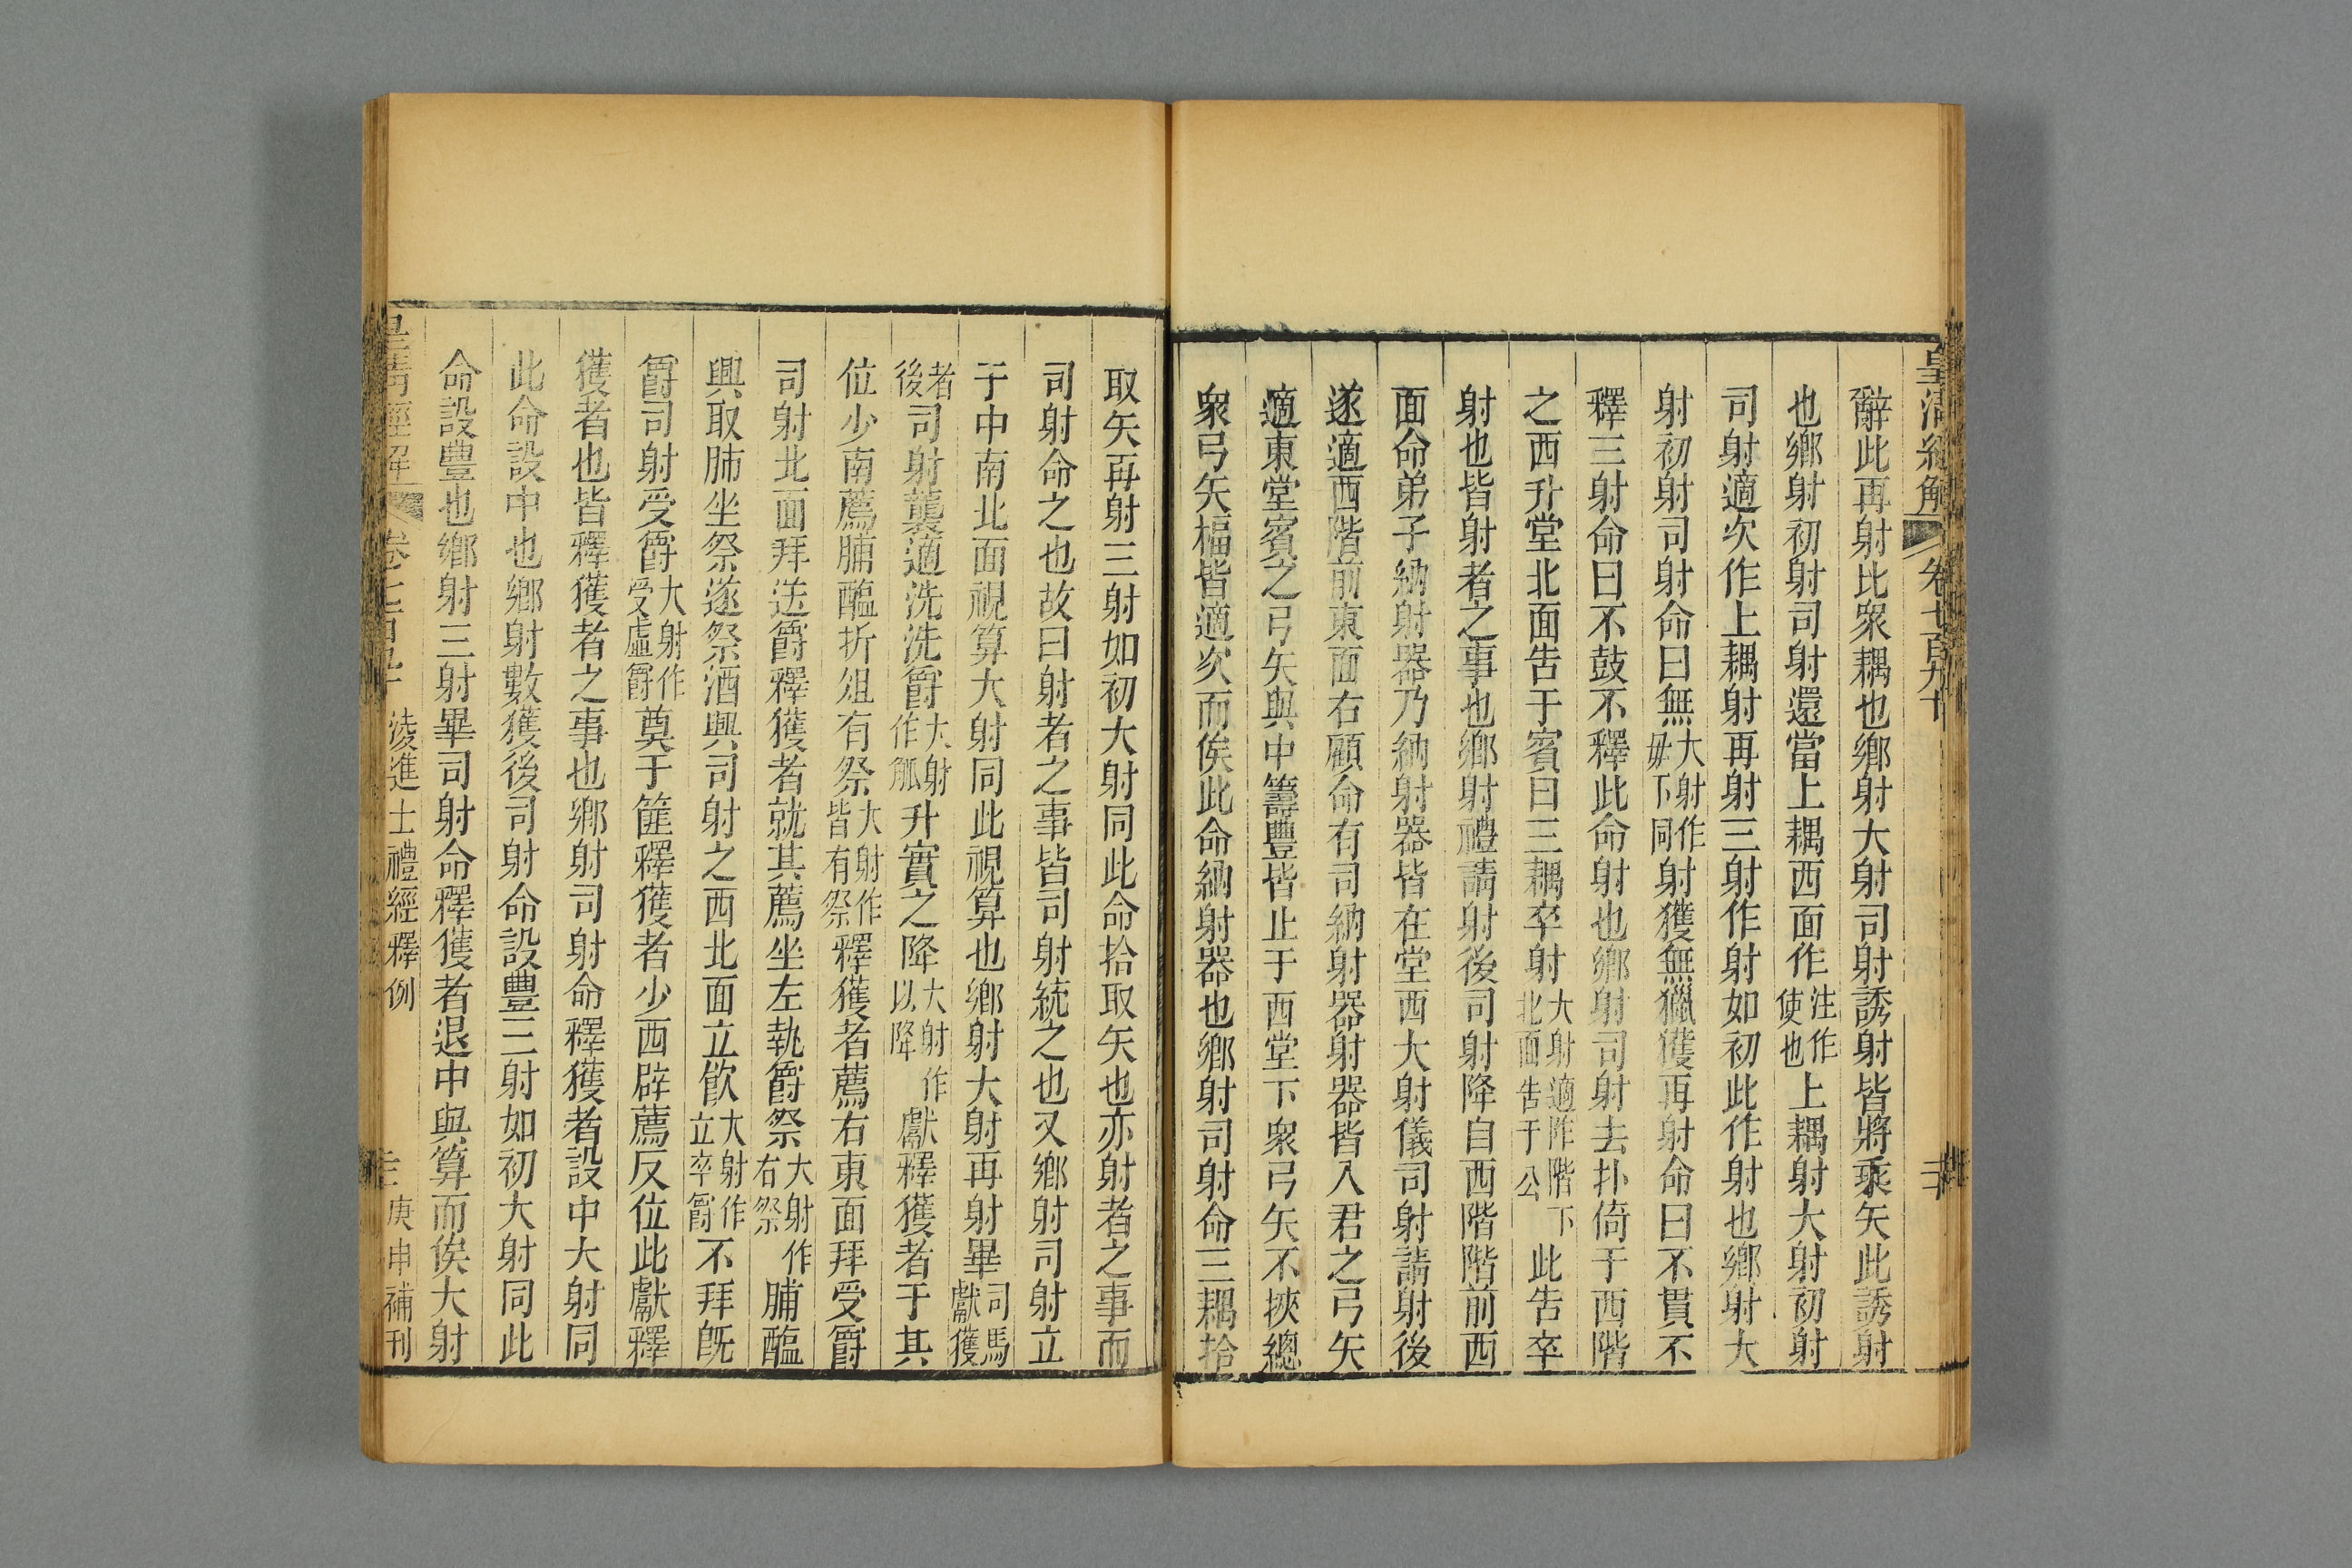 皇清經解 卷七百九十
辭此再射比衆耦也鄉射大射司射誘射皆將乘矢此誘射
也鄉射初射司射還當上耦西面作注作使也上耦射大射初射
司射適次作上耦射再射三射作射如初此作射也鄉射大
射初射司射命曰無大射作毋下同射獲無獵獲再射命曰不貫不
釋三射命曰不鼓不釋此命射也鄉射司射去扑倚于西階
之西升堂北面告于賓曰三耦卒射大射適阼階下北面告于公此告卒
射也皆射者之事也鄉射禮請射後司射降自西階階前西
面命弟子納射器乃納射器皆在堂西大射儀司射請射後
遂適西階前東面右顧命有司納射器射器皆入君之弓矢
適東堂賓之弓矢與中籌豐皆止于西堂下衆弓矢不挾總
衆弓矢楅皆適次而俟此命納射器也鄉射司射命三耦拾
取矢再射三射如初大射同此命拾取矢也亦射者之事而
司射命之也故曰射者之事皆司射統之也又鄉射司射立
于中南北面視算大射同此視算也鄉射大射再射畢司馬獻獲
者後司射襲適洗洗爵大射作觚升實之降大射作以降獻釋獲者于其
位少南薦脯醢折俎有祭大射作皆有祭釋獲者薦右東面拜受爵
司射北面拜送爵釋獲者就其薦坐左執爵祭大射作右祭脯醢
興取肺坐祭遂祭酒興司射之西北面立飲大射作立卒爵不拜旣
爵司射受爵大射作受虛爵奠于篚釋獲者少西辟薦反位此獻釋
獲者也皆釋獲者之事也鄉射司射命釋獲者設中大射同
此命設中也鄉射數獲後司射命設豐三射如初大射同此
命設豐也鄉射三射畢司射命釋獲者退中與算而俟大射
皇清經解 卷七百九十 淩進士禮經釋例 庚申補刊